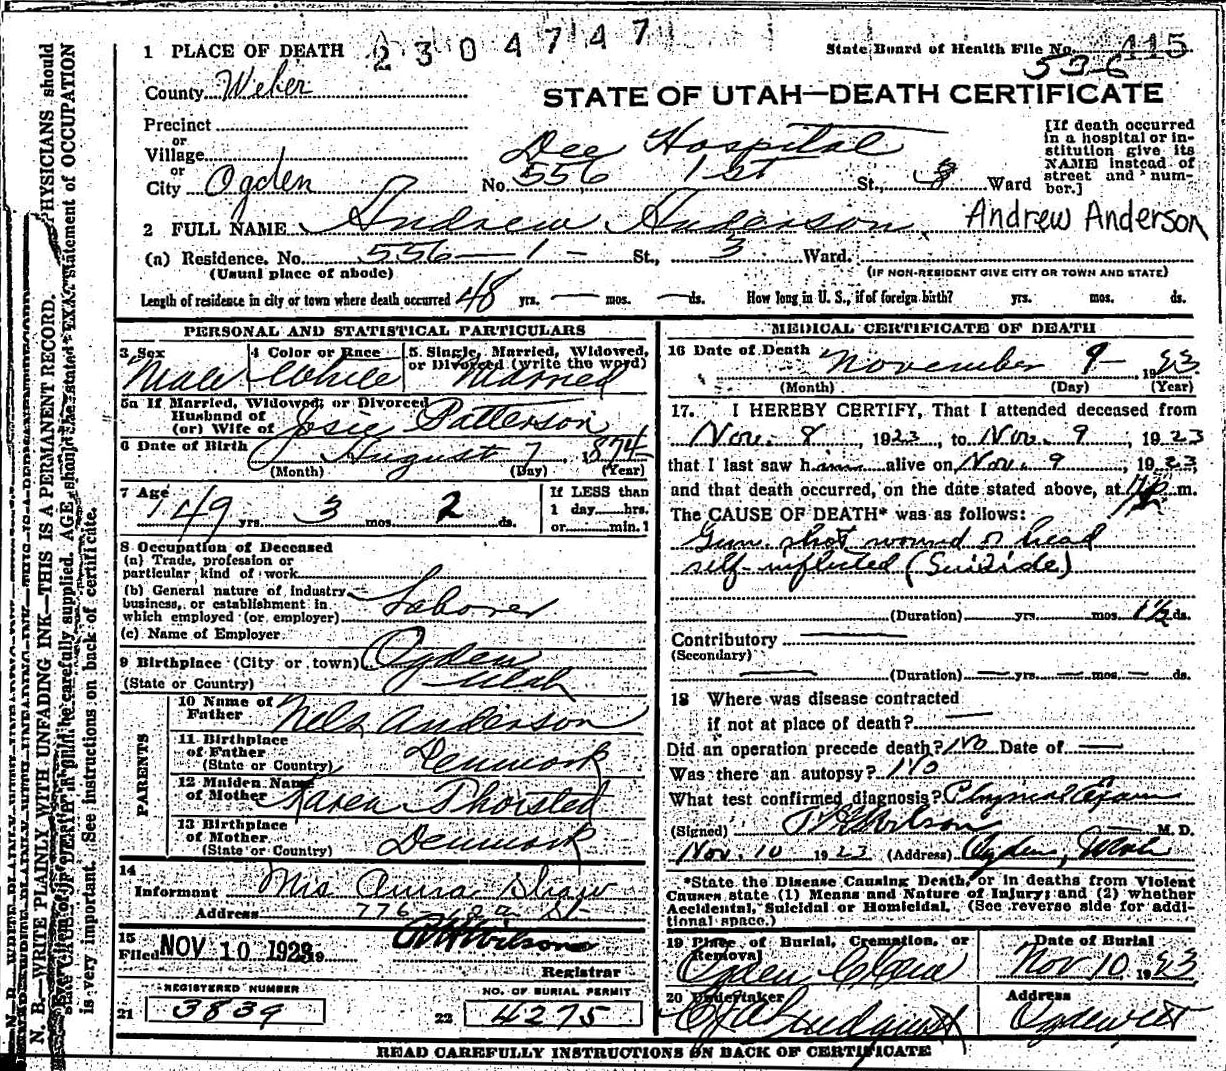 1 PLACE OF DEATH 2304747
State Board of Health File No. 415
536
County Weber
STATE OF UTAH—DEATH CERTIFICATE
Precinct
or
Village
or
City Ogden
Dee Hospital
No. 556 1st St., 3 Ward
[If death occurred
in a hospital or in-
stitution give its
NAME instead of
street and num-
ber.]
2 FULL NAME Andrew Anderson Andrew Anderson
(a) Residence. No. 556 — 1 — St., 3 Ward.
(Usual place of abode)
(IF NON-RESIDENT GIVE CITY OR TOWN AND STATE)
Length of residence in city or town where death occurred 48 yrs. — mos. — ds. How long in U. S., if of foreign birth? yrs. mos. ds.
PERSONAL AND STATISTICAL PARTICULARS
3 Sex Male
4 Color or Race White
5 Single, Married, Widowed,
or Divorced (write the word)
Married
5a If Married, Widowed, or Divorced
Husband of
(or) Wife of Josie Patterson
6 Date of Birth August 7, 1874
(Month) (Day) (Year)
7 Age 49 yrs. 3 mos. 2 ds.
If LESS than
1 day hrs.
or min.
8 Occupation of Deceased
(a) Trade, profession or
particular kind of work
(b) General nature of industry
business, or establishment in
which employed (or employer) Laborer
(c) Name of Employer
9 Birthplace (City or town) Ogden
(State or Country) Utah
PARENTS
10 Name of
Father Nels Anderson
11 Birthplace
of Father
(State or Country) Denmark
12 Maiden Name
of Mother Karen Thorsted
13 Birthplace
of Mother
(State or Country) Denmark
14
Informant Mrs Anna Shaw
Address 776 St
15
Filed NOV 10 1923 19
Registrar
REGISTERED NUMBER
21 3839
NO. OF BURIAL PERMIT
22 4275
MEDICAL CERTIFICATE OF DEATH
16 Date of Death November 9 — 1923
(Month) (Day) (Year)
17. I HEREBY CERTIFY, That I attended deceased from
Nov. 8, 1923, to Nov. 9, 1923
that I last saw him alive on Nov. 9, 1923,
and that death occurred, on the date stated above, at m.
The CAUSE OF DEATH* was as follows:
Gun shot wound of head
self-inflicted (Suicide)
(Duration) yrs. mos. 1½ ds.
Contributory
(Secondary)
(Duration) — yrs. — mos. — ds.
18 Where was disease contracted
if not at place of death? —
Did an operation precede death? No Date of —
Was there an autopsy? No
What test confirmed diagnosis? Physical Exam
(Signed) Wilson M. D.
Nov. 10 1923 (Address) Ogden, Utah
*State the Disease Causing Death, or in deaths from Violent
Causes state (1) Means and Nature of Injury; and (2) whether
Accidental, Suicidal or Homicidal. (See reverse side for addi-
tional space.)
19 Place of Burial, Cremation, or
Removal
Ogden City
Date of Burial
Nov 10 1923
20 Undertaker
Address
READ CAREFULLY INSTRUCTIONS ON BACK OF CERTIFICATE
N. B.—WRITE PLAINLY WITH UNFADING INK—THIS IS A PERMANENT RECORD.
carefully supplied. AGE should be stated EXACTLY. PHYSICIANS should
state CAUSE OF DEATH in statement of OCCUPATION
is very important. See instructions on back of certificate.